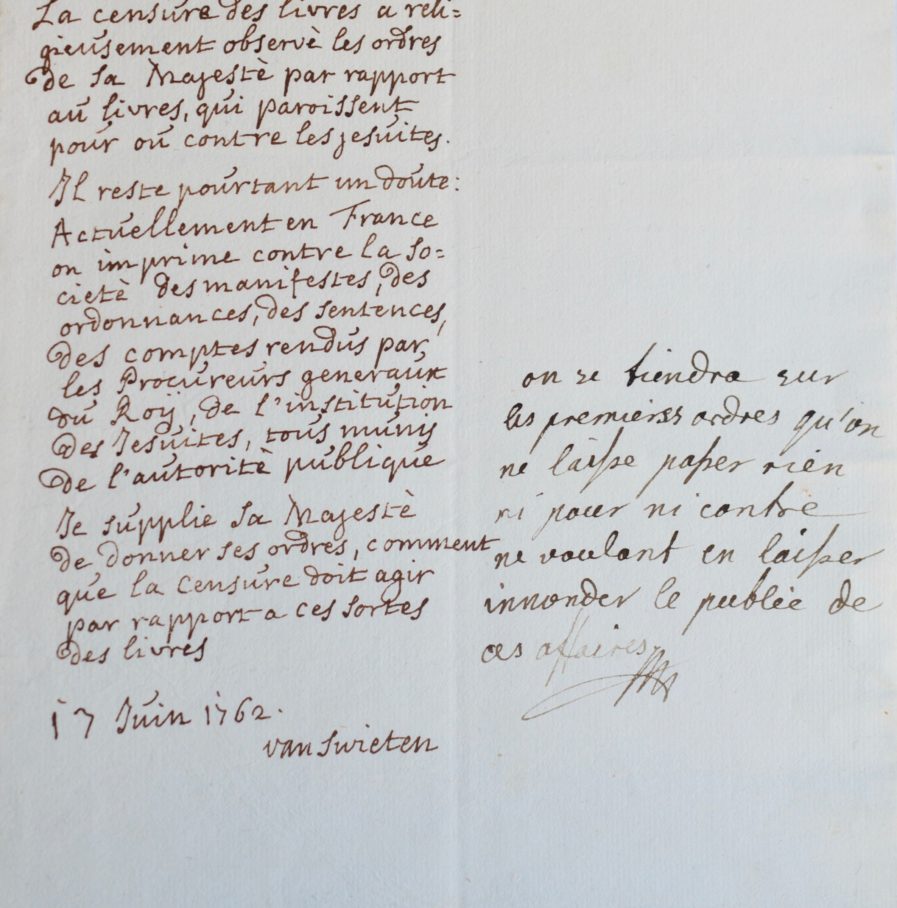 La censure des livres a reli=
gieusement observè les ordres
de sa Majestè par rapport
au livres, qui paroissent
pour ou contre les jesuites.
Il reste pourtant un doute:
Actuellement en France
on imprime contre la so=
cietè des manifestes, des
ordonnances, des sentences,
des comptes rendus par
les Procureurs generaux
du Roÿ, de l'institution
des Jesuites, tous munis
de l'autoritè publique
Je supplie sa Majestè
de donner ses ordres, comment
que la censure doit agir
par rapport a ces sortes
des livres
17 Juin 1762.
van swieten
on se tiendra sur
les premierss ordres qu'on
ne laisse passer rien
ni pour ni contre
ne voulant en laisser
innonder le publie de
ces affaires